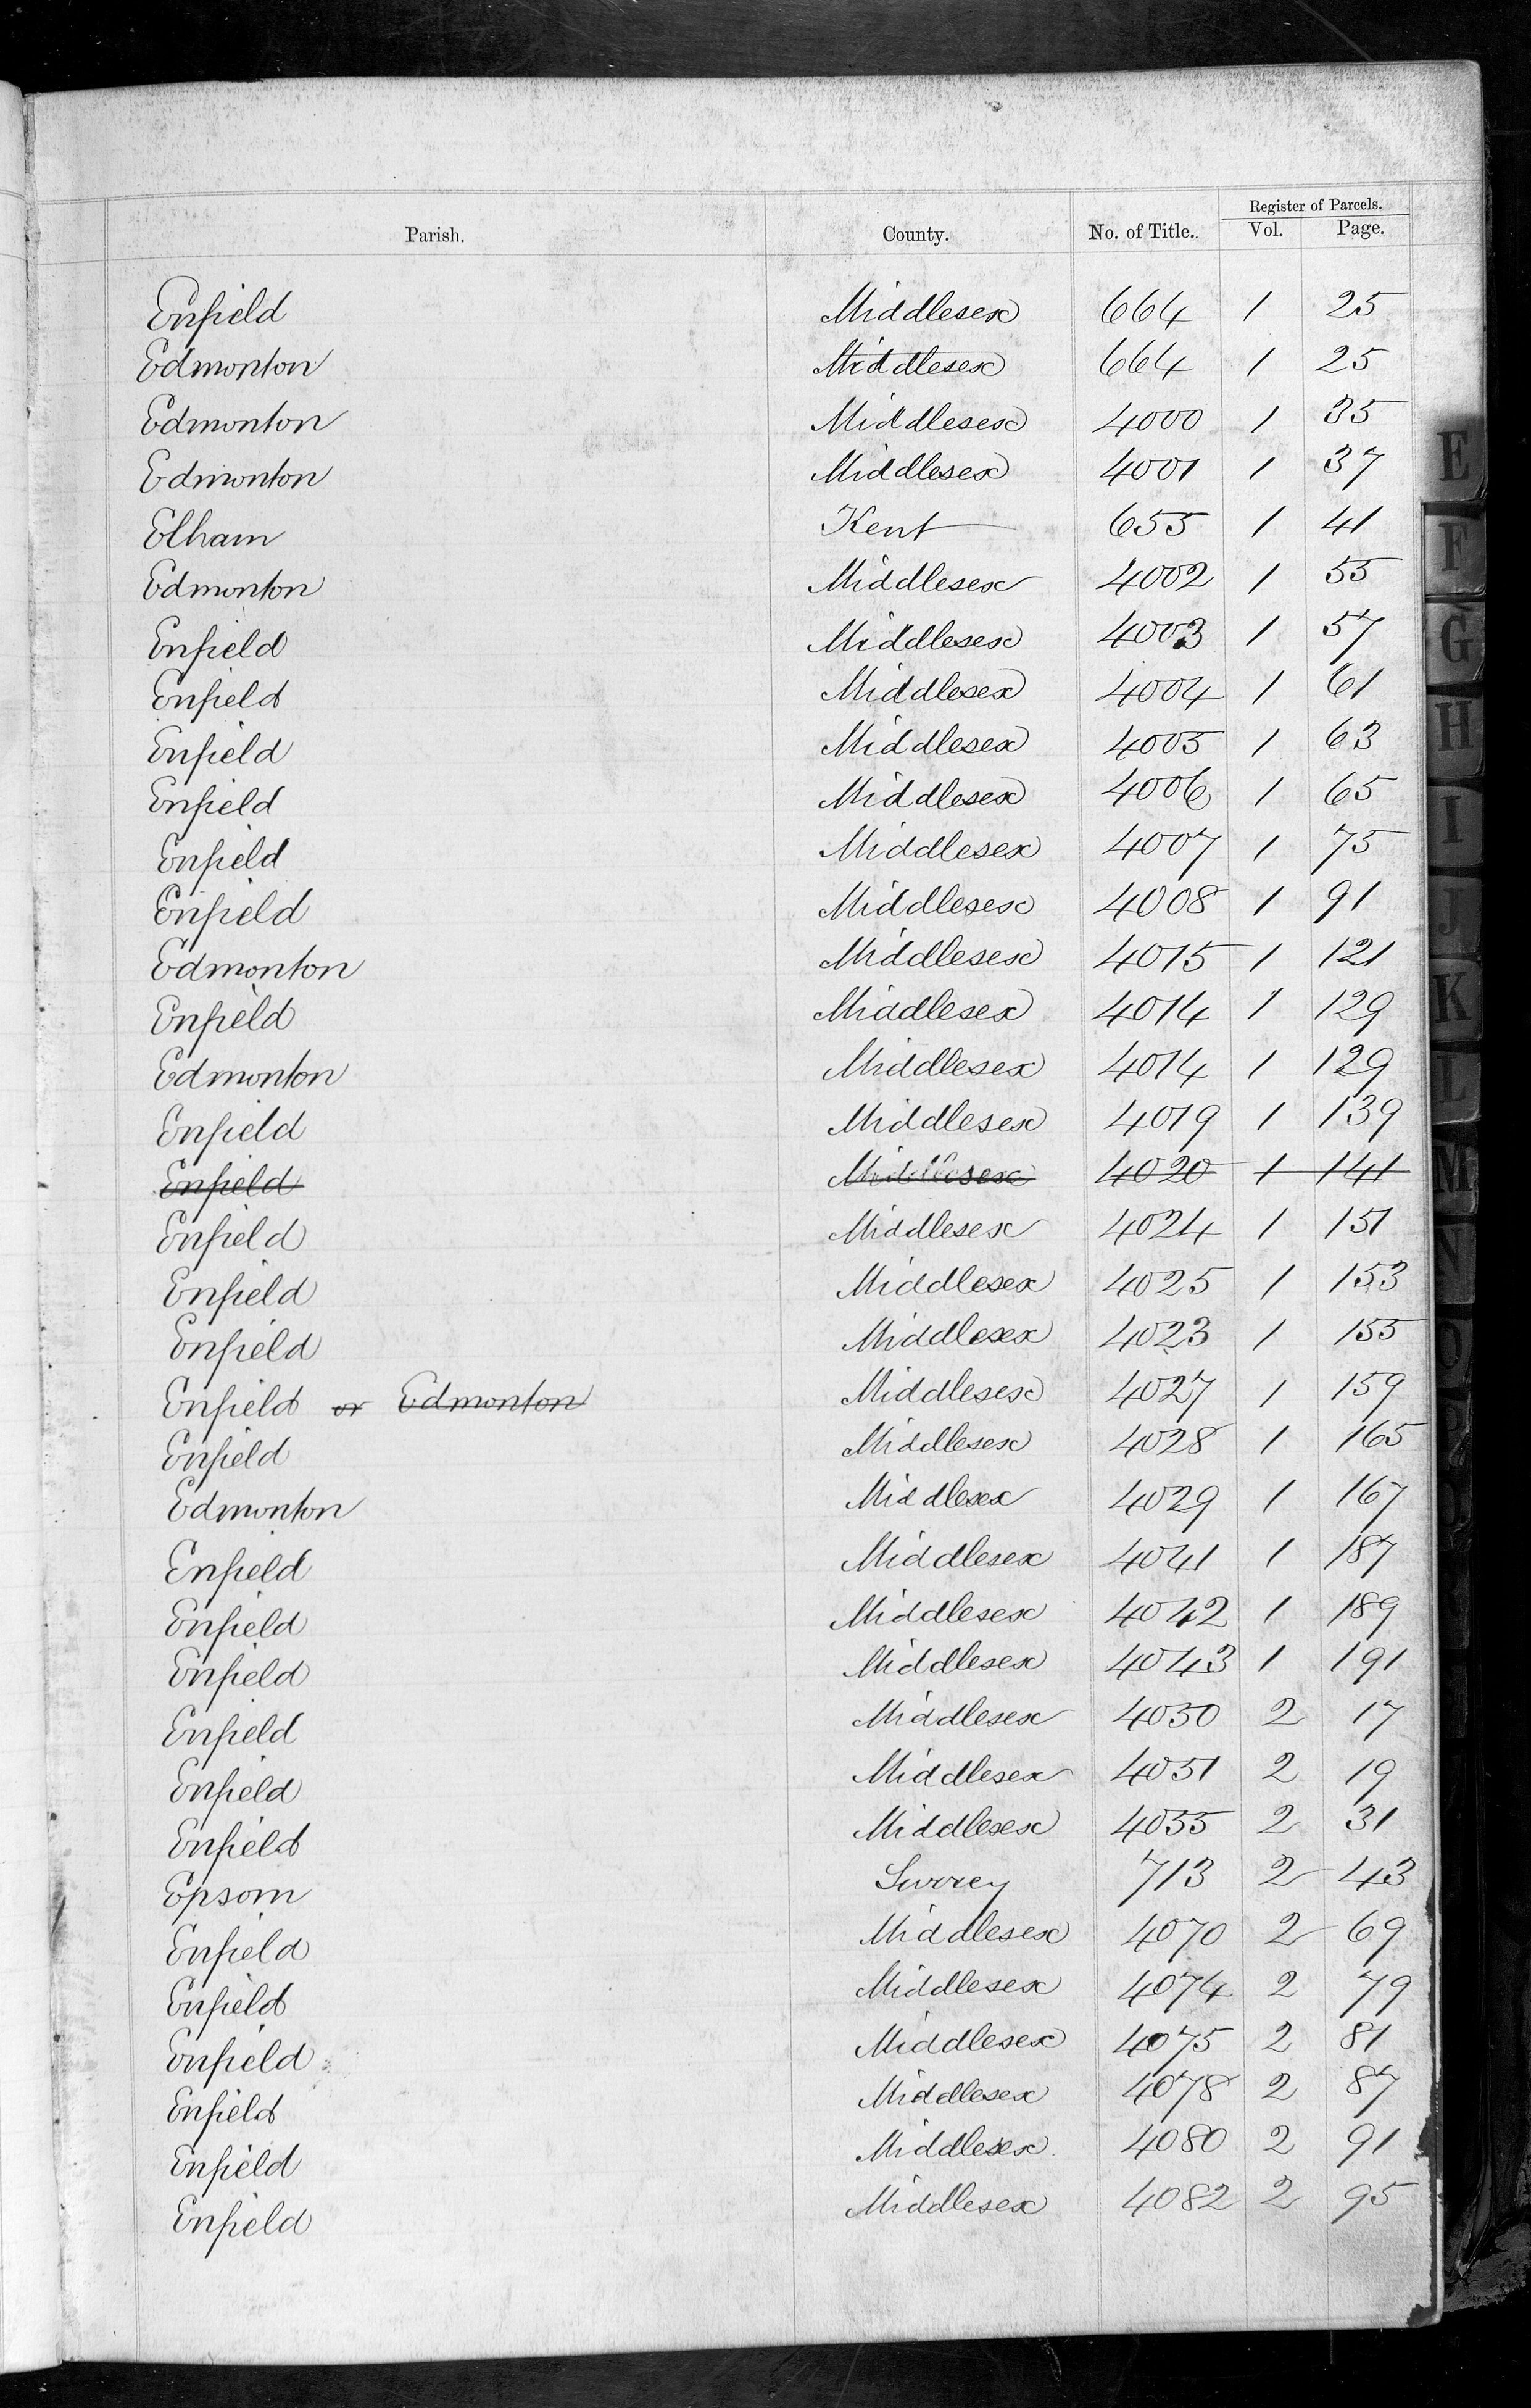 Register of Parcels.
Parish. County. No. of Title. Vol. Page.
Enfield Middlesex 664 1 25
Edmonton Middlesex 664 1 25
Edmonton Middlesex 4000 1 35
Edmonton Middlesex 4001 1 37
Elham Kent 655 1 41
Edmonton Middlesex 4002 1 55
Enfield Middlesex 4003 1 57
Enfield Middlesex 4004 1 61
Enfield Middlesex 4005 1 63
Enfield Middlesex 4006 1 65
Enfield Middlesex 4007 1 75
Enfield Middlesex 4008 1 91
Edmonton Middlesex 4015 1 121
Enfield Middlesex 4014 1 129
Edmonton Middlesex 4014 1 129
Enfield Middlesex 4019 1 139
Enfield Middlesex 4020 1 141
Enfield Middlesex 4024 1 151
Enfield Middlesex 4025 1 153
Enfield Middlesex 4023 1 155
Enfield or Edmonton Middlesex 4027 1 159
Enfield Middlesex 4028 1 165
Edmonton Middlesex 4029 1 167
Enfield Middlesex 4041 1 187
Enfield Middlesex 4042 1 189
Enfield Middlesex 4043 1 191
Enfield Middlesex 4050 2 17
Enfield Middlesex 4051 2 19
Enfield Middlesex 4055 2 31
Epsom Surrey 713 2 43
Enfield Middlesex 4070 2 69
Enfield Middlesex 4074 2 79
Enfield Middlesex 4075 2 81
Enfield Middlesex 4078 2 87
Enfield Middlesex 4080 2 91
Enfield Middlesex 4082 2 95
E
F
G
H
I
J
K
L
M
N
O